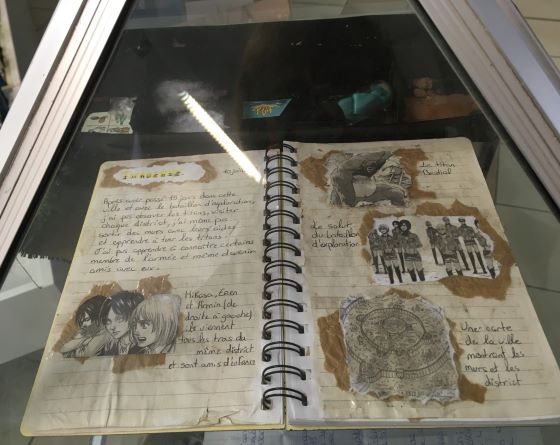 Après avoir passé 15 jours dans cette
ville et avec le bataillon d'exploration,
j'ai pas observer les titans, visiter
chaque district, j'ai même pas
sortir des murs avec leurs aides
et apprendre à tuer les titans.
J'ai pas apprendre à connaître certains
membre de l'armée et même devenir
amis avec eux.
Mikasa, Eren
et Armin (de
droite à gauche)
ils viennent
tous les trois du
même district
et sont amis d'enfance
Le titan
Bestial
Le salut
du bataillon
d'exploration
Une carte
de la ville
montrant les
murs et les
district